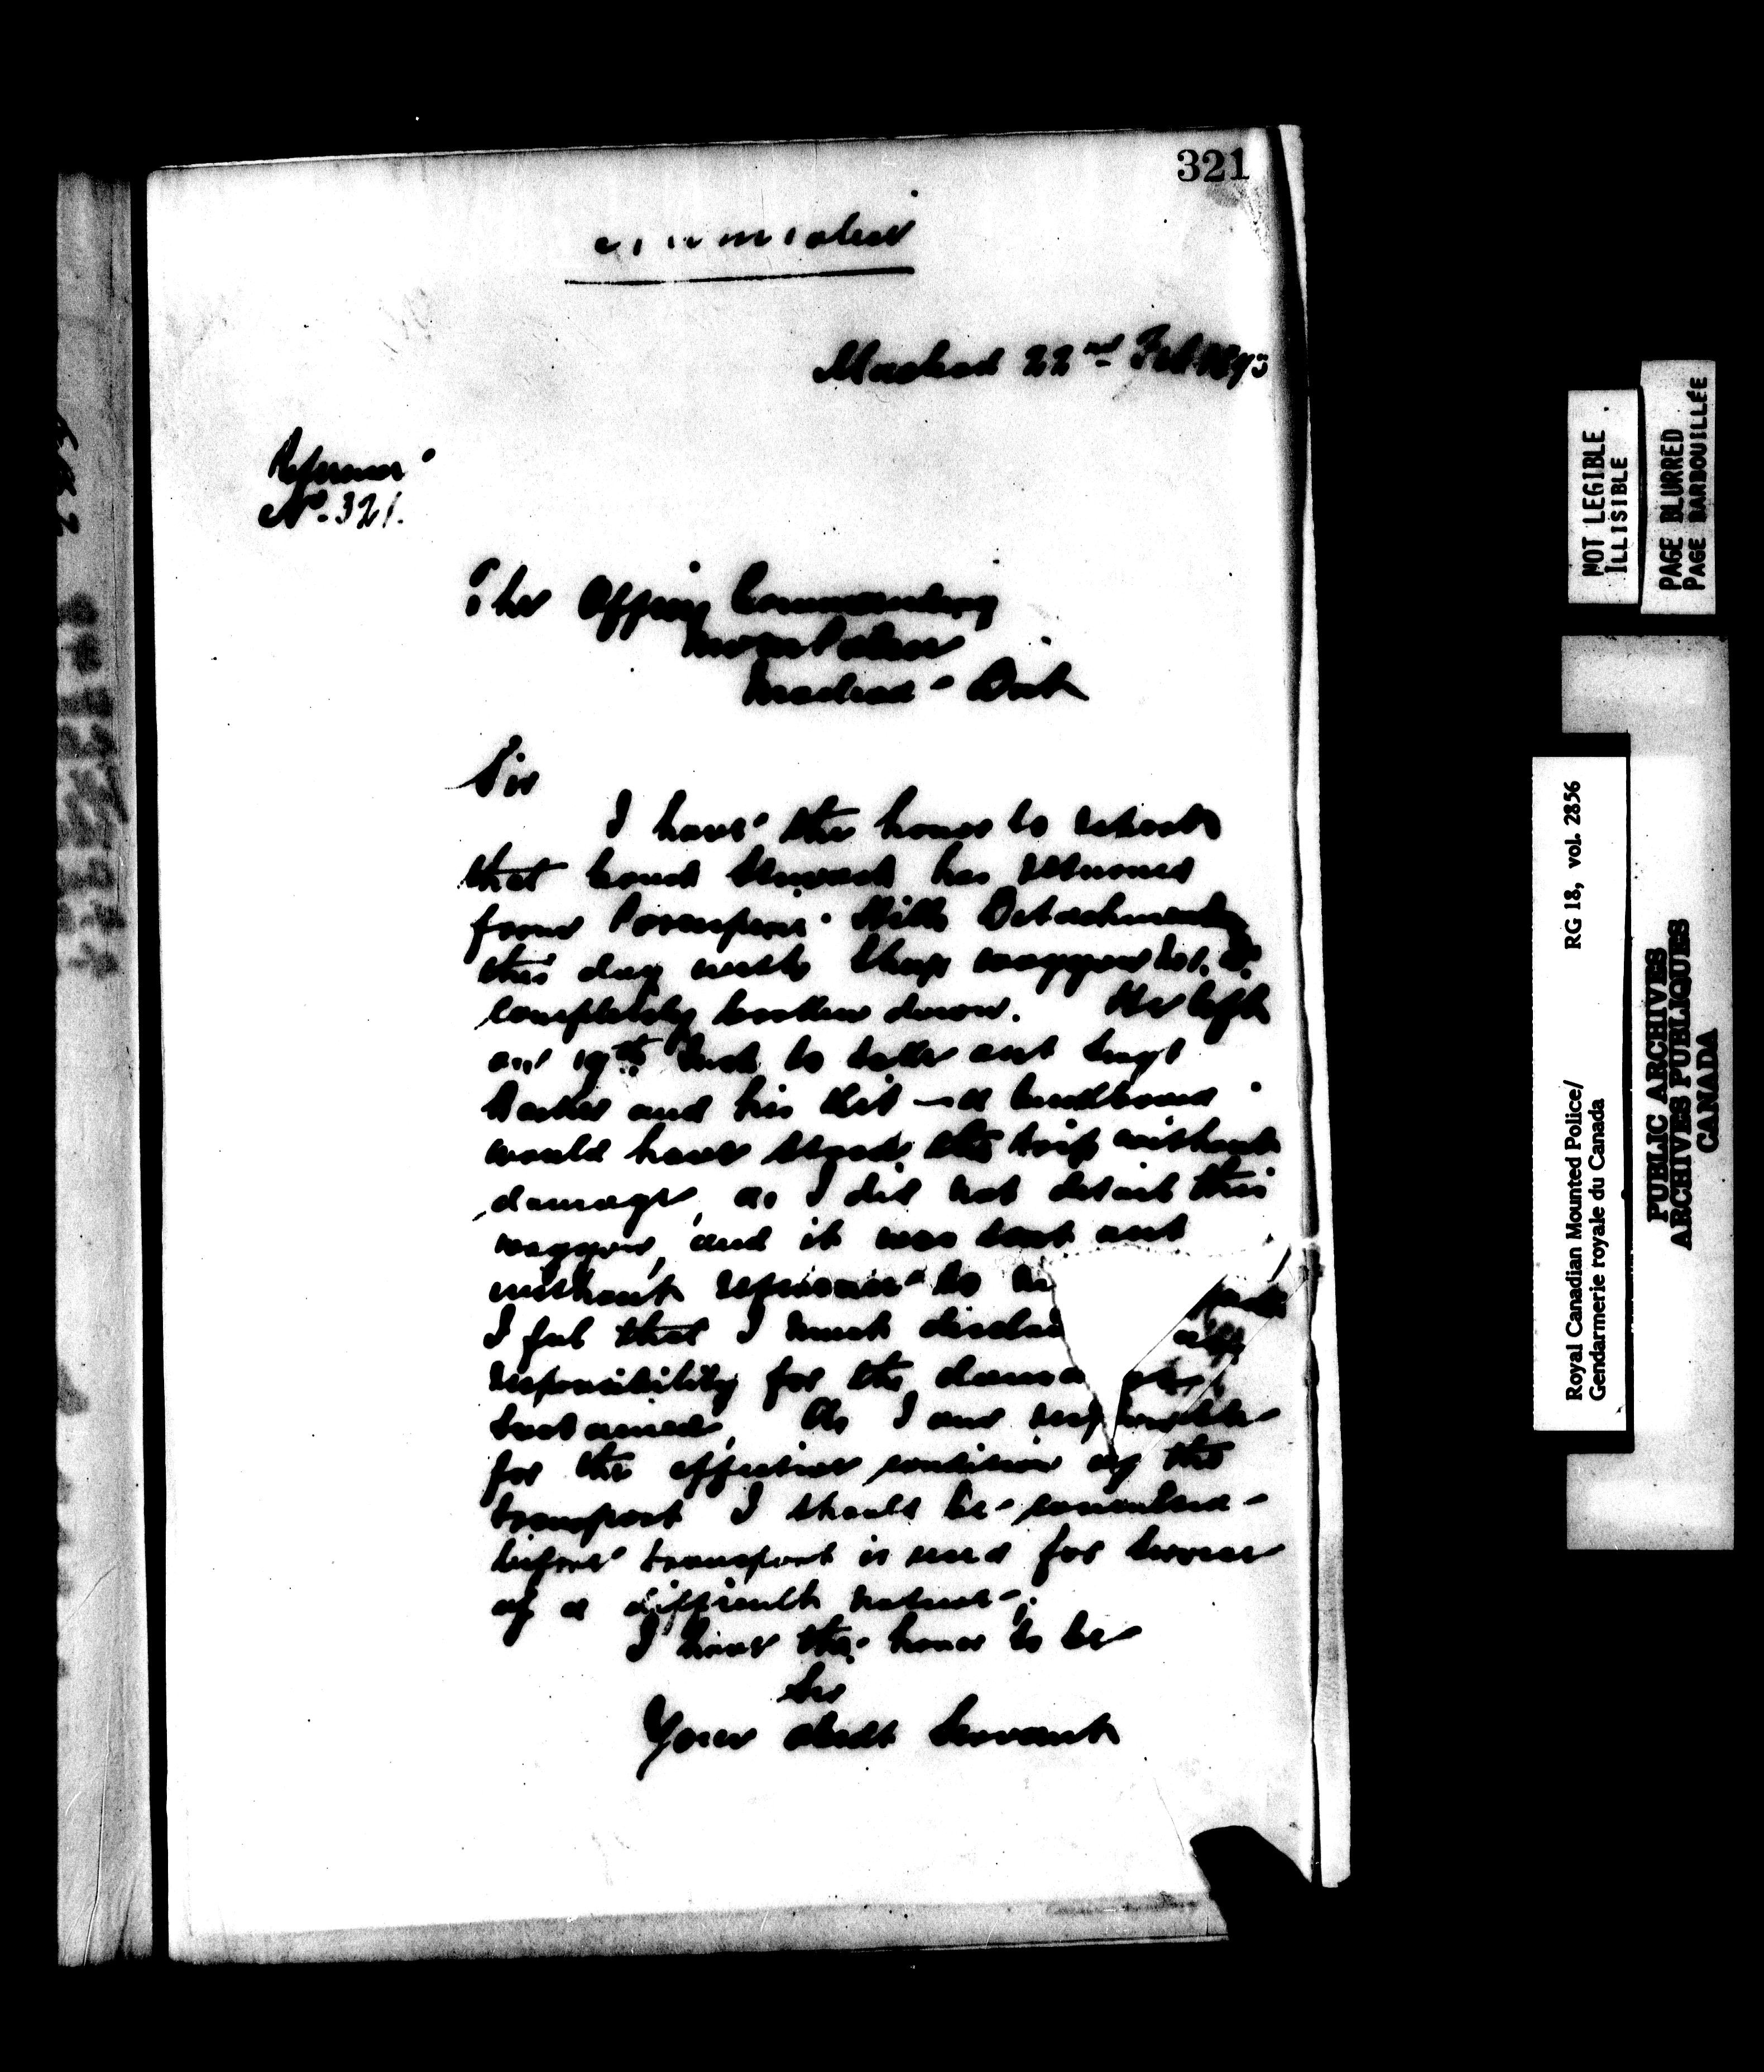 321
Macleod 22nd Feb 189
Reference
No. 321.
The Officer Commanding
Macleod Dist
Sir
I have the honor to report
that has returned
from Porcupine Hills Detachment
this day with waggon
completely broken down. He left
on 19th Inst to take out Sergt
and his kit — a buckboard
would have stood the trip without
damage, as I did not detail this
waggon, and it was sent out
without reference to
I feel that I must all
responsibility for the
sustained, As I am responsible
for the effective condition of the
transport I should be consulted
before transport is used for service
of a difficult nature.
I have the honor to be
Sir
Your obedt Servant
NOT LEGIBLE
ILLISIBLE
PAGE BLURRED
PAGE BARBOUILLÉE
Royal Canadian Mounted Police/ RG 18, vol. 2856
Gendarmerie royale du Canada
PUBLIC ARCHIVES
ARCHIVES PUBLIQUES
CANADA